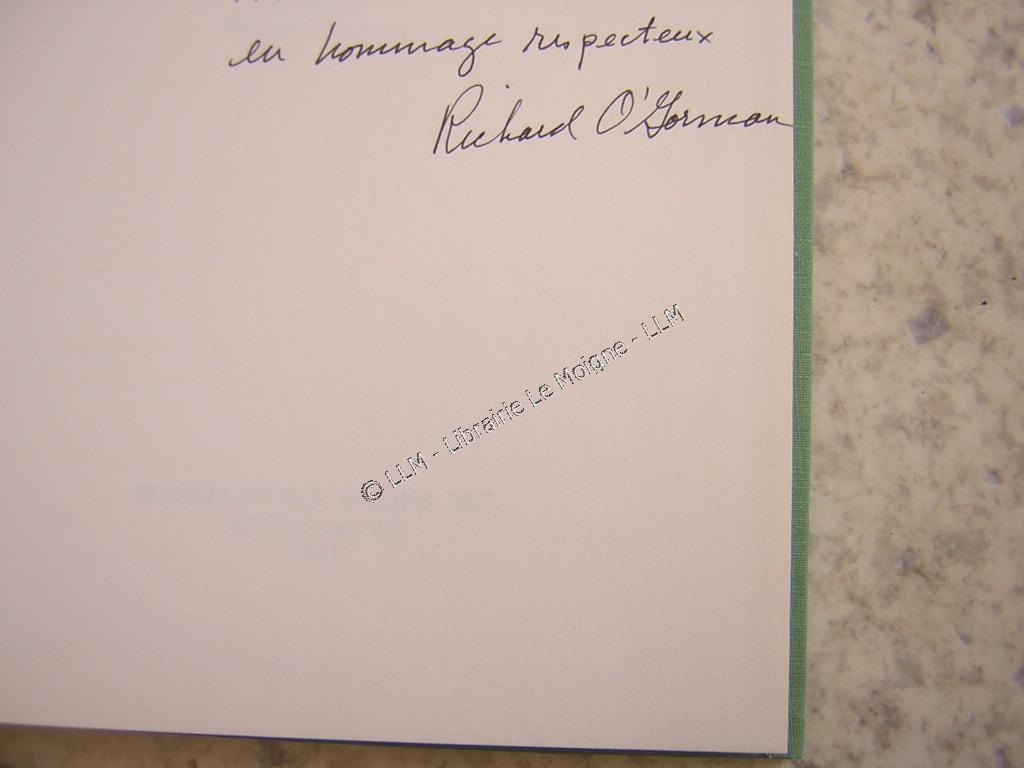 en hommage respecteux
Richard O'Gorman
© LLM - Librairie Le Moigne - LLM